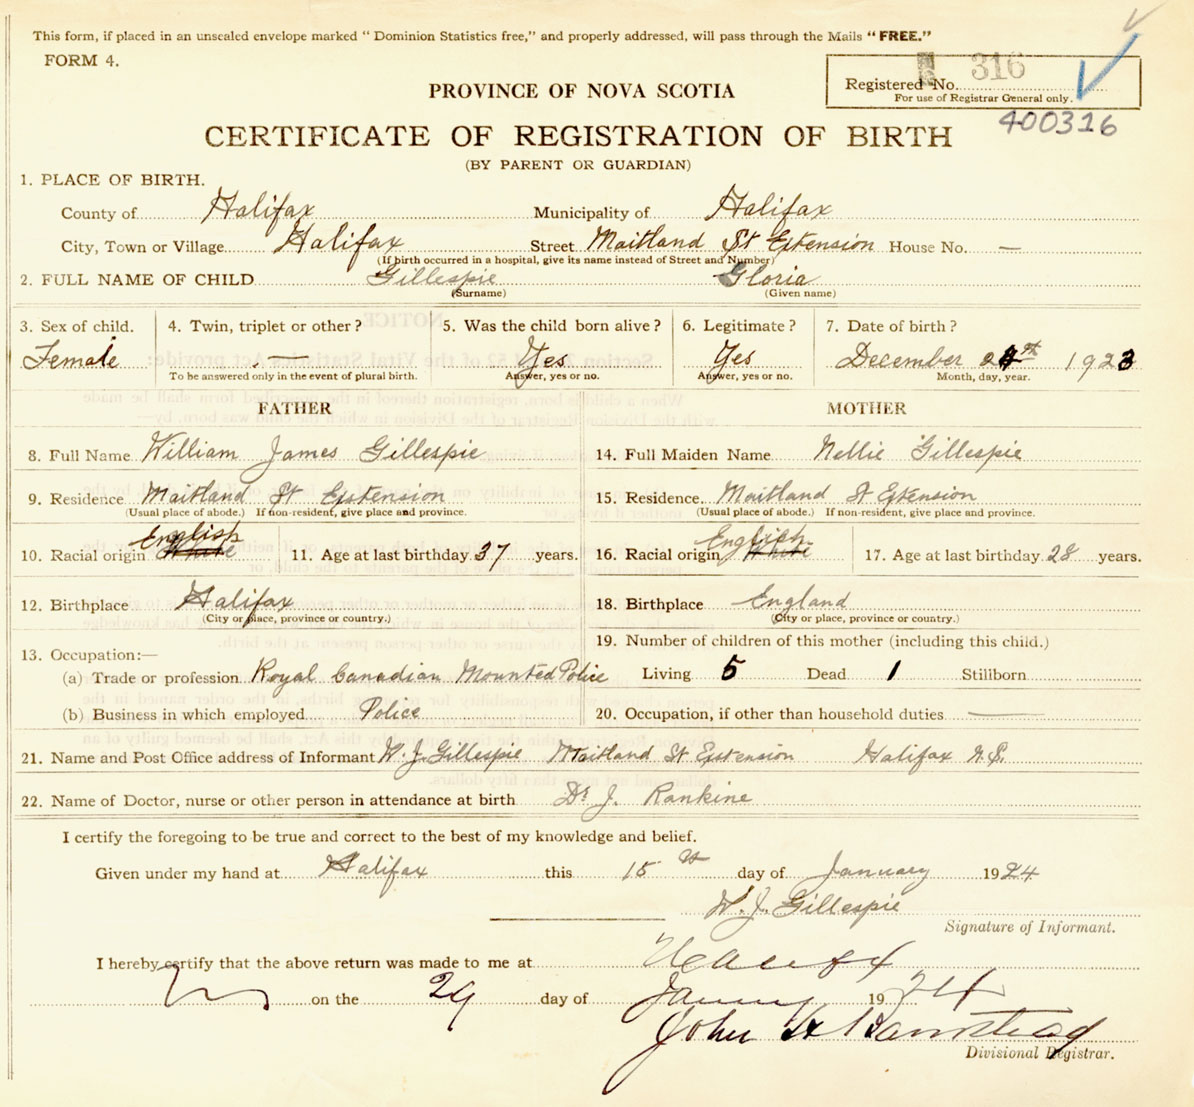 This form, if placed in an unsealed envelope marked “ Dominion Statistics free,” and properly addressed, will pass through the Mails “ FREE.”
FORM 4.
316
Registered No.
For use of Registrar General only.
400316
PROVINCE OF NOVA SCOTIA
CERTIFICATE OF REGISTRATION OF BIRTH
(BY PARENT OR GUARDIAN)
1. PLACE OF BIRTH.
County of Halifax Municipality of Halifax
City, Town or Village Halifax Street Maitland St Extension House No. —
(If birth occurred in a hospital, give its name instead of Street and Number)
2. FULL NAME OF CHILD Gillespie Gloria
(Surname) (Given name)
3. Sex of child. 4. Twin, triplet or other ? 5. Was the child born alive ? 6. Legitimate ? 7. Date of birth ?
Female — Yes Yes December 1923
To be answered only in the event of plural birth. Answer, yes or no. Answer, yes or no. Month, day, year.
FATHER MOTHER
8. Full Name William James Gillespie 14. Full Maiden Name Nellie Gillespie
9. Residence Maitland St Extension 15. Residence. Maitland St Extension
(Usual place of abode.) If non-resident, give place and province. (Usual place of abode.) If non-resident, give place and province.
English English
10. Racial origin White 11. Age at last birthday 37 years. 16. Racial origin White 17. Age at last birthday 28 years.
12. Birthplace Halifax 18. Birthplace England
(City or place, province or country.) (City or place, province or country.)
19. Number of children of this mother (including this child.)
13. Occupation:—
(a) Trade or profession Royal Canadian Mounted Police Living 5 Dead 1 Stillborn
(b) Business in which employed Police 20. Occupation, if other than household duties —
21. Name and Post Office address of Informant W. J. Gillespie Maitland St Extension Halifax N.S.
22. Name of Doctor, nurse or other person in attendance at birth Dr J. Rankine
I certify the foregoing to be true and correct to the best of my knowledge and belief.
Given under my hand at Halifax this 15th day of January 1924
W. J. Gillespie
Signature of Informant.
I hereby certify that the above return was made to me at Halifax
on the 29 day of January 1924
John
Divisional Registrar.